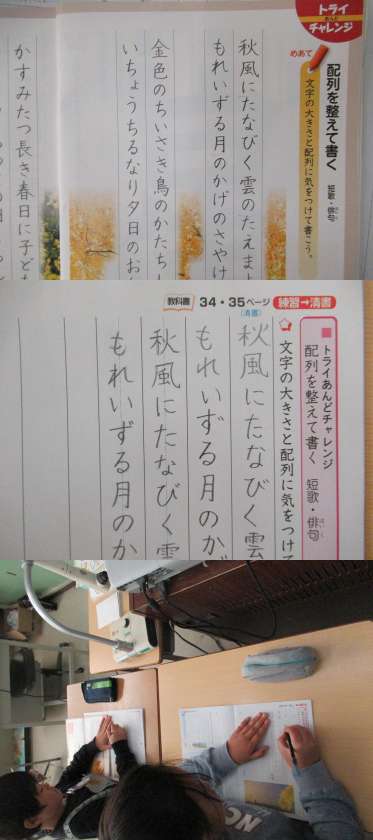 トライ
あんど
チャレンジ
めあて
配列を整えて書く 短歌・俳句
文字の大きさと配列に気をつけて書こう。
秋風にたなびく雲のたえま
もれいずる月のかげのさやけ
金色のちいさき鳥のかたち
いちょうちるなり夕日のお
かすみたつ長き春日に子ど
教科書 34・35ページ 練習→清書
(清書)
トライあんどチャレンジ
配列を整えて書く 短歌・俳句
文字の大きさと配列に気をつけ
秋風にたなびく雲
もれいずる月のか
秋風にたなびく雲
もれいずる月のか